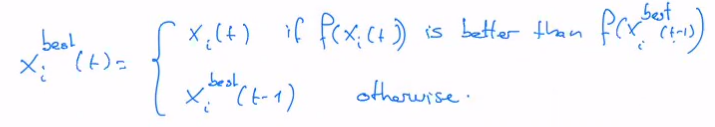 x_i^best (t) = { x_i(t) if f(x_i(t)) is better than f(x_i^best (t-1))
x_i^best (t-1) otherwise.